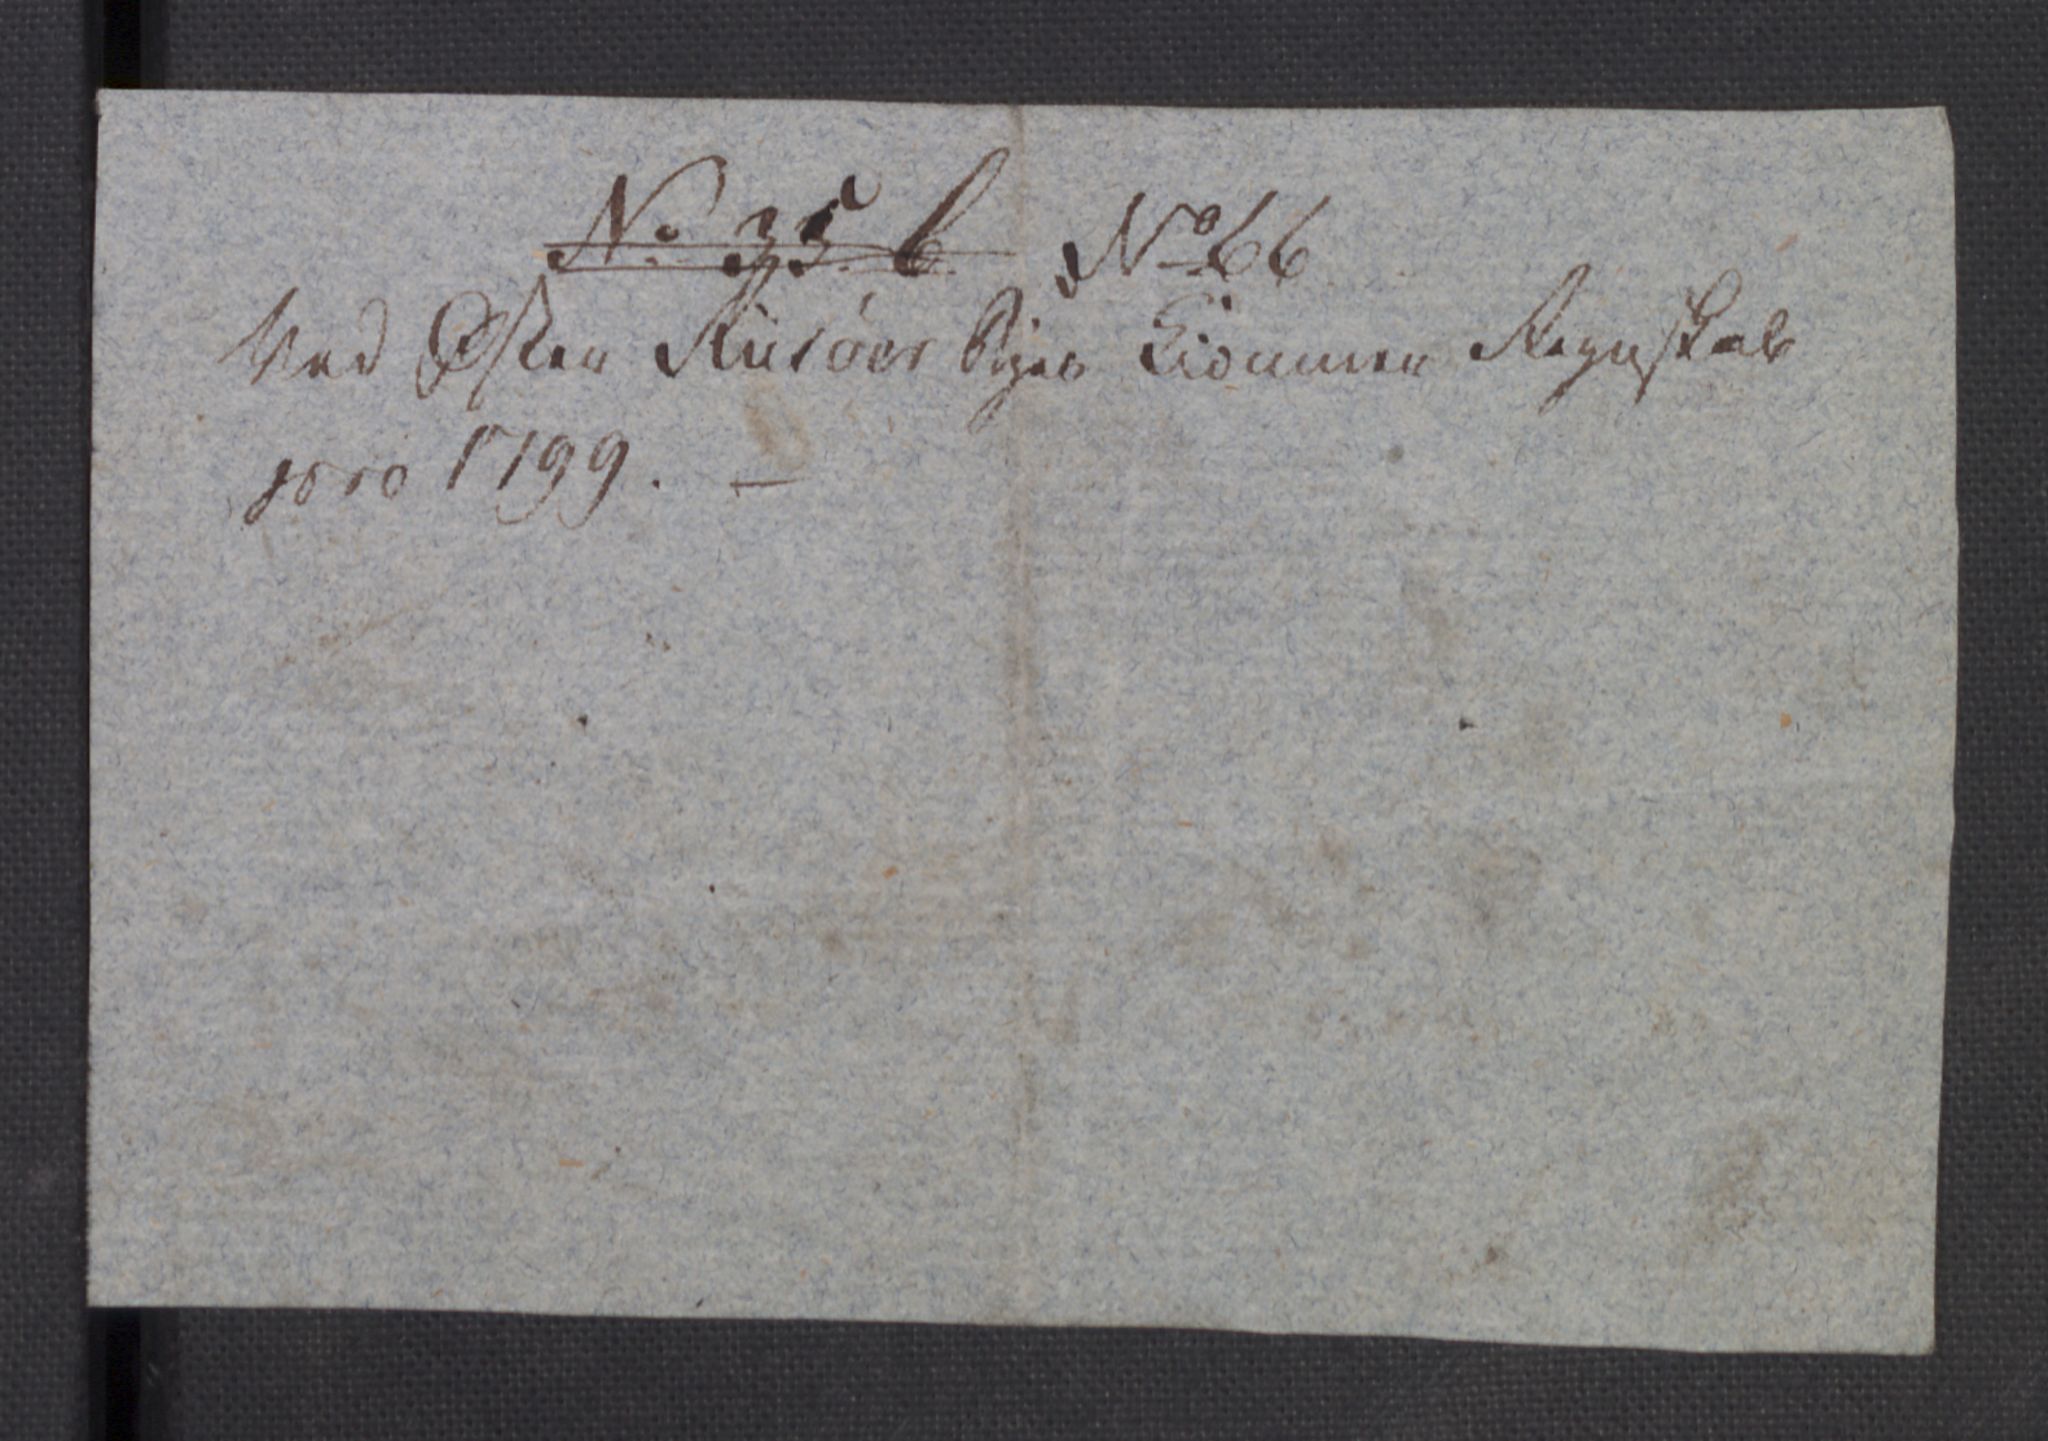 No. 35. b. No 66
Ved Øster Riisöer Byes Kiömner Regnskab
pro 1799. —